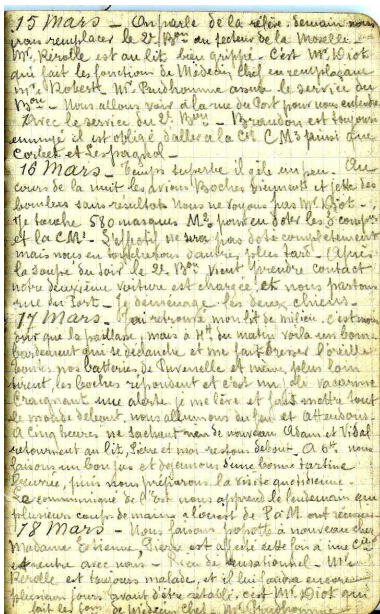 15 Mars - On parle de la relève. demain nous
irons remplacer le 2e Bon au secteur de la Moselle -
Mr Rérolle est au lit bien grippé - C'est Mr Diot
qui fait les fonctions de Médecin Chef en remplaçant
Mr Robert Mr Prudhomme assure le service du
Bon - Nous allons voir à la rue du Port pour nous entendre
avec le service du 2e Bon - Brandon est toujours
ennuyé il est obligé d'aller à la Cie CMs ainsi que
et Lespagnol -
16 Mars - Temps superbe il gèle un peu - Au
cours de la nuit les avions Boches viennent et jette des
bombes sans résultats Nous ne voyons pas Mr Diot -
Je touche 580 masques M2 pour en doter les 3 compies
et la CM1 - L'effectif ne sera pas doté complètement
mais nous en toucherons d'autres plus tard - Après
la soupe du soir le 2e Bon vient prendre contact
notre deuxième voiture est chargée, et nous partons
rue du Port - Je déménage les deux chiens -
17 Mars - J'ai retrouvé mon lit de milieu, c'est mieux
que la paillasse, mais à 4h du matin voila un bom
bardement qui se déclanche et me fait dresser l'oreille
toutes nos batteries de Puvenelle et même plus loin
tirent, les boches répondent et c'est un joli vacarme
Craignant une alerte je me lève et fais mettre tout
le monde debout, nous allumons du feu et attendons
A cinq heures ne sachant rien de nouveau Adam et Vidal
retournent au lit, Pierre et moi restons debout. A 6h nous
faisons un bon jus et déjeunons d'une bonne tartine
beurrée, puis nous préparons la visite quotidienne -
Le communiqué de l'Est nous apprend le lendemain que
plusieurs coups de mains à l'ouest de PàM ont
18 Mars - Nous faisons popotte à nouveau chez
Madame Etienne, Pierre est affecté cette fois à une Cie
avec nous - Rien de sensationnel - Mr
Rérolle est toujours malade, et il lui faudra encore
plusieurs jours avant d'être rétabli, c'est Mr Diot qui
fait les fons de Médecin Chef - Mr Prudhomme